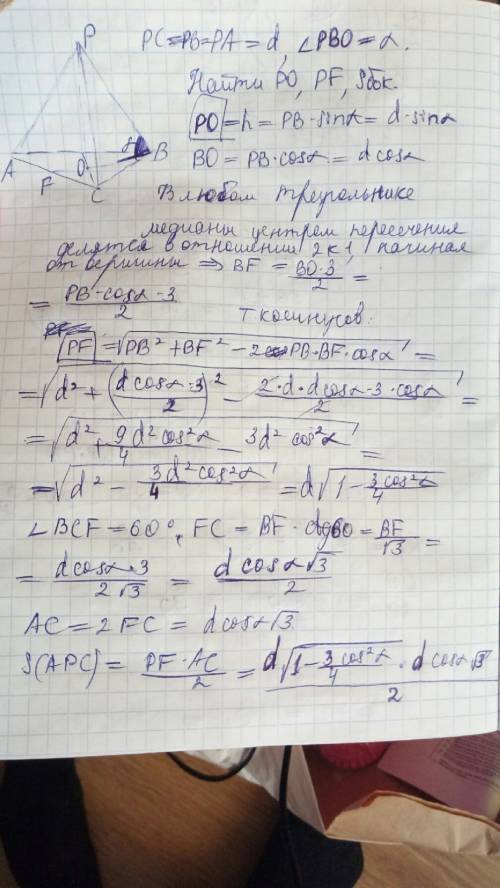 P
PC=PB=PA=d, ∠PBO=α.
Найти PO, PF, Sбок.
PO=h=PB·sinα=d·sinα
A α B
O
F
C
BO=PB·cosα=d cosα
В любом треугольнике
медианы центром пересечения
делятся в отношении 2 к 1 начиная
от вершины ⇒ BF = BO·3/2 =
= PB·cosα·3/2
Т косинусов:
PF = √(PB² + BF² − 2·PB·BF·cosα) =
= √(d² + (d cosα·3/2)² − 2·d·d cosα·3·cosα/2) =
= √(d² + 9/4 d² cos²α − 3d² cos²α) =
= √(d² − 3d² cos²α/4) = d√(1 − 3/4 cos²α)
∠BCF = 60°, FC = BF · ctg60 = BF/√3 =
= d cosα·3/2√3 = d cosα√3/2
AC = 2FC = d cosα√3
S(APC) = PF·AC/2 = d√(1 − 3/4 cos²α) · d cosα√3/2